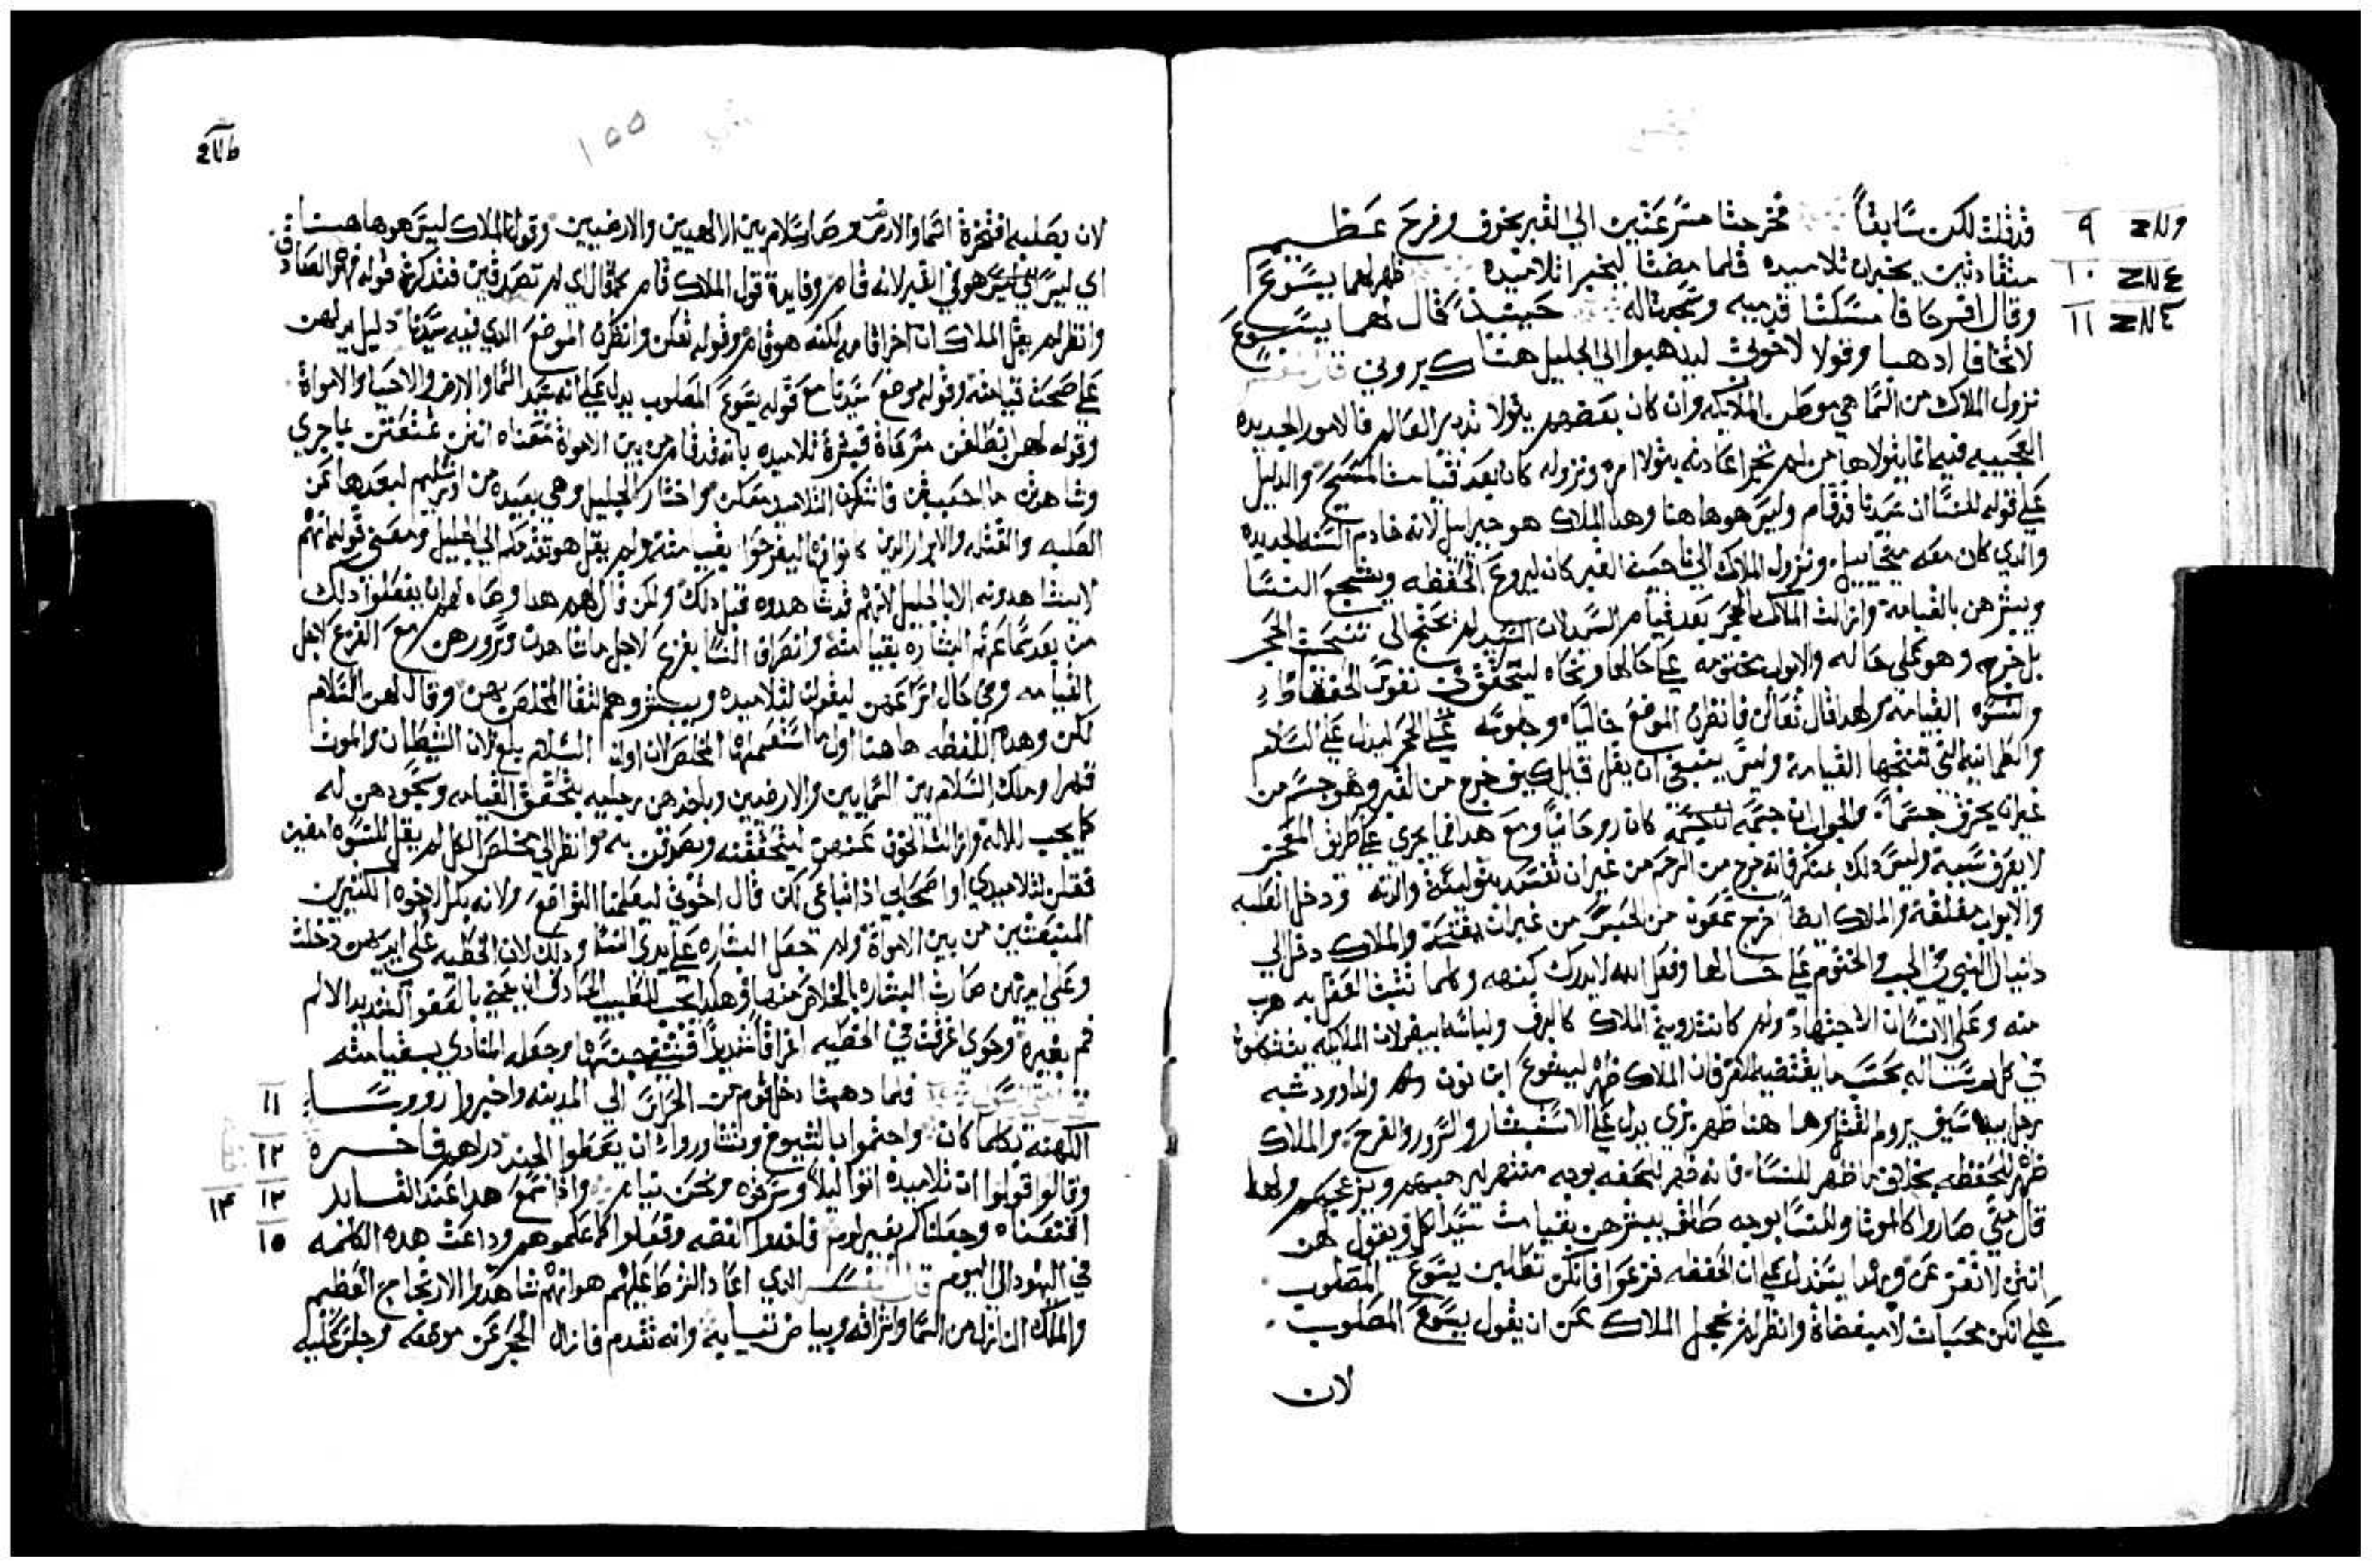 قد قلت لكن سابقاً فخرجتا مسرعتين الي القبر بخوف وفرح عظيم
يخبران تلاميده فلما مضتا ليخبرا تلاميده ظهر لهما يسوع
وقال افرحا فامسكتا قدميه وسجدتا له حينيذ قال لهما يسوع
لا تخافا ادهبا وقولا لاخوتي ليدهبوا الي الجليل هناك يروني قال المفسر
نزول الملاك من السما هي موطن الملايكه وان كان بعضهم يتولا تدبير العالم فالامور الجديده
العجيبيه فيها انما يتولاها من لم تجر عادته يتولا امره ونزوله كان بعد قيامت المسيح والدليل
علي قوله للنسا ان سيدنا قد قام وليس هو هاهنا وهدا الملاك هو جبراييل لانه خادم السنه الجديده
والدي كان معه ميخاييل ونزول الملاك الي ناحيت القبر كان ليروع الحفظه ويشجع النسا
ويبشرهن بالقيامة وازالت الملاك الحجر بعد قيام السيد لان السيد لم يحتج الي تنحيت الحجر
بل خرج وهو علي حاله والابواب مختومه علي حالها ونحاه ليتحقق
والنسوه القيامه ولهدا قال تعالن فانظرن الموضع خالياً وجلوسه علي الحجر ليدل علي السلام
والطمانينه التي فتحها القيامة وليس ينبغي ان يقل قايل كيف خرج من القبر وهو جسم من
غير ان يخرق جسماً والجواب ان جسمه كان روحانياً ومع هدا فما يجري علي طريق المعجز
لا يعرف سببه وليس دلك بمنكر فانه خرج من الرحم من غير ان تفسد بتولية والدته ودخل العليه
والابواب مغلقة والملاك ايضاً اخرج شمعون من الحبس من غير ان والملاك دخل الي
دانيال النبي في الجب والختوم علي حالها وفعل الله لا يدرك كنهه وكلما تشبث العقل به هرب
منه وعلي الانسان الاجتهاد ولم كانت رويه الملاك كالبرق ولباسه ابيض لان الملايكه يتشكلون
في كل رساله بحسب ما يقتضيه الغرض فان الملاك ظهر ليشوع ابن نون ولداوود شبه
رجل بيده سيف يروم القتل وهاهنا ظهر بزي يدل علي الاستبشار والسرور والفرح والملاك
ظهر للحفظه بخلاف ما ظهر للنسا فانه ظهر للحفظه بوجه منتهر لهم ويزعجهم ولهدا
قال متي صاروا كالموتا وللنسا بوجه طلق يبشرهن بقيامت سيد الكل ويقول لهن
انتن لا تفزعن وبهدا يستدل علي ان الحفظه فزعوا فانكن تطلبن يسوع المصلوب
علي انكن محبات لا مبغضاة وانظر لم يخجل الملاك من ان يقول يسوع المصلوب
لان
١٥٥
لان بصلبه افتخرة السما والارض وصار سلام بين الالهيين والارضيين وقول الملاك ليس هو هاهنا
اي ليس هو في القبر لانه قام وفايدة قول الملاك قام كما قال اي لم تصدقين فتدكرن قوله فهو الصادق
وانظر لم يقل الملاك ان اخر اقامه لكنه هو قام وقوله تعلن وانظرن الموضع الدي فيه سيدنا دليل لهن
علي صحت قيامته وقوله موضع سيدنا مع قوله يسوع المصلوب يدل علي انه سيد السما والارض والاحيا والامواة
وقوله لهن انطلقن مسرعاة فبشرن تلاميده بانه قد قام من بين الامواة معناه انتن بما جري
وشاهدتن ما احببتن فاشركن التلاميد معكن واختار الجليل وهي بعيده من اورشليم لبعدها عن
الصلبه والقتله والابرار الدين كانوا فيها ليفرحوا بقيامته ولم يقل هو تقدمكم الي الجليل ومعني قوله انهم
لا يشاهدونه الا بالجليل لانهم قد شاهدوه قبل دلك ولكن قال لهم هدا وصاه لهم ان يفعلوا دلك
من بعد سماعهم البشاره بقيامته وانصراف النسا بفزع لاجل ما شاهدن وسرورهن مع الفزع لاجل
القيامه وفي حال اسراعهن ليقولن لتلاميده ويبشروهم لتقا المخلص بهن وقال لهن السلام
لكن وهده اللفظه هاهنا اول ما استعملها المخلص لان اوان السلام بلغ لان الشيطان والموت
قهرا وملك السلام بين السمايين والارضيين وباخدهن رجليه بتحقق القيامه وسجودهن له
كما يجب للاله وازالت الخوف عنهن ليتحققنه ويصدقن به وانظر الي مخلص الكل لم يقل للنسوه امضين
فقلن لتلاميدي او اصحابي او اتباعي لكن قال اخوتي ليعلمنا التواضع ولانه بكر لاخوه الكثيرين
المنبعثين من بين الامواة ولم جعل البشاره علي يدي النسا ودلك لان الخطيه علي ايديهن دخلت
وعلي ايديهن صارت البشاره بالخلاص منها وهكدا يجب للطبيب الحادق ان يعتني بالعضو الشديد الالم
ثم بغيره وحوي اغرقت في الخطيه اغراقاً شديداً وجعله المنادي بقيامته
فلما دهبتا دخل قوم من الحراس الي المدينه واخبروا روسا
الكهنة بكلما كان واجتمعوا بالشيوخ وتشاوروا ان يعطوا الجند دراهم فاخره
وقالوا قولوا ان تلاميده اتوا ليلاً وسرقوه ونحن نيام وادا سمع هدا عند القايد
اقنعناه وجعلناكم بغير لوم فاخدوا الفضه وفعلوا كما علموهم وداعت هده الكلمه
في اليهود الي اليوم قال المفسر الدي اعاد الشرط عليهم هو انهم شاهدوا الارتجاج العظيم
والملك النازل من السما واشراقه وبياض ثيابه وانه تقدم فازال الحجر عن موضعه وجلس عليه